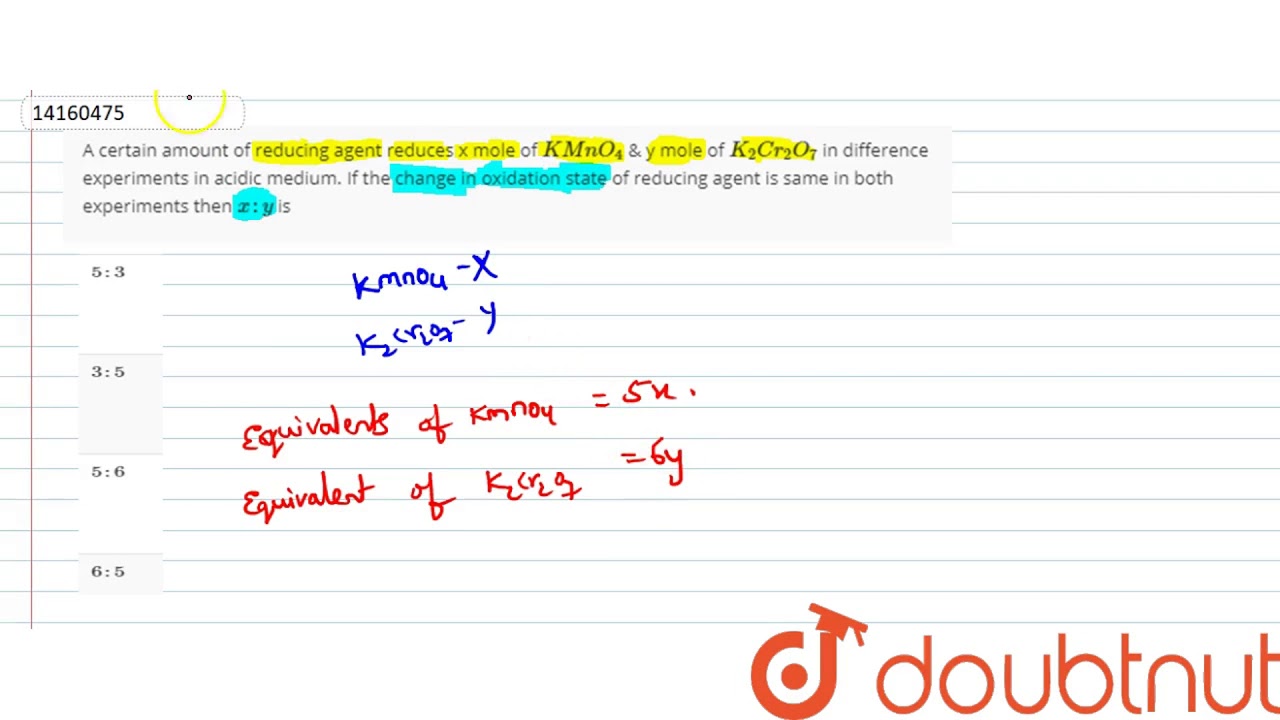 14160475
A certain amount of reducing agent reduces x mole of KMnO₄ & y mole of K₂Cr₂O₇ in difference
experiments in acidic medium. If the change in oxidation state of reducing agent is same in both
experiments then x : y is
5 : 3
KmnO4 - X
K₂Cr₂O₇ - Y
3 : 5
Equivalents of KmnO4 = 5x .
5 : 6
Equivalent of K₂Cr₂O₇ = 6y
6 : 5
doubtnut